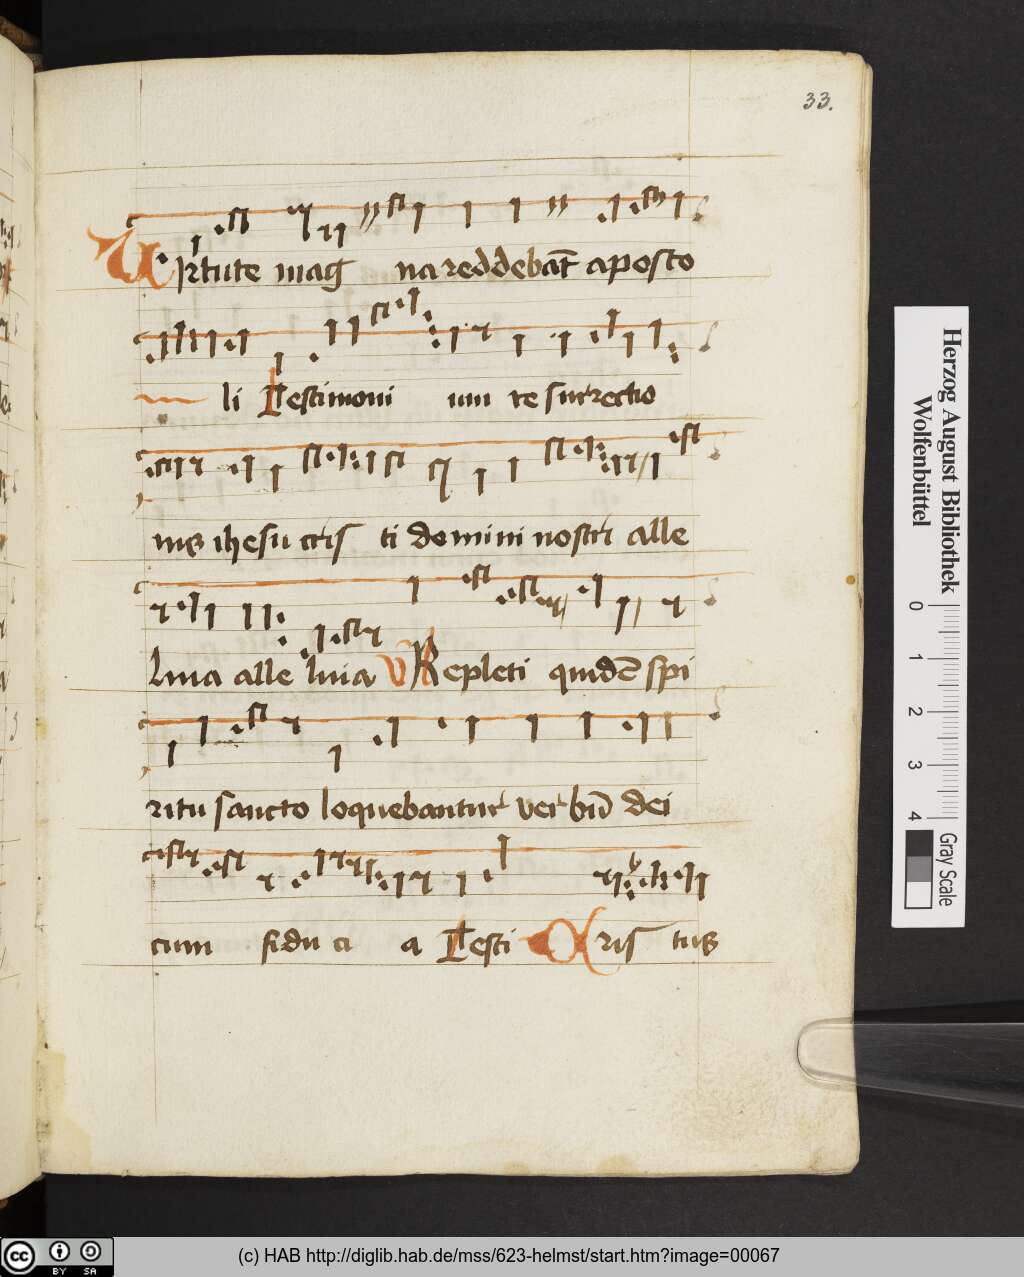 33.
Virtute mag na reddebāt aposto
li Testimoni um re surrectio
nis ihesu cris ti domini nostri alle
luia alle luia V Repleti quidē spi
ritu sancto loquebantur verbū dei
cum fidu ci a Testi Cris tus
Herzog August Bibliothek
Wolfenbüttel
0 1 2 3 4
Gray Scale
cc BY SA
(c) HAB http://diglib.hab.de/mss/623-helmst/start.htm?image=00067